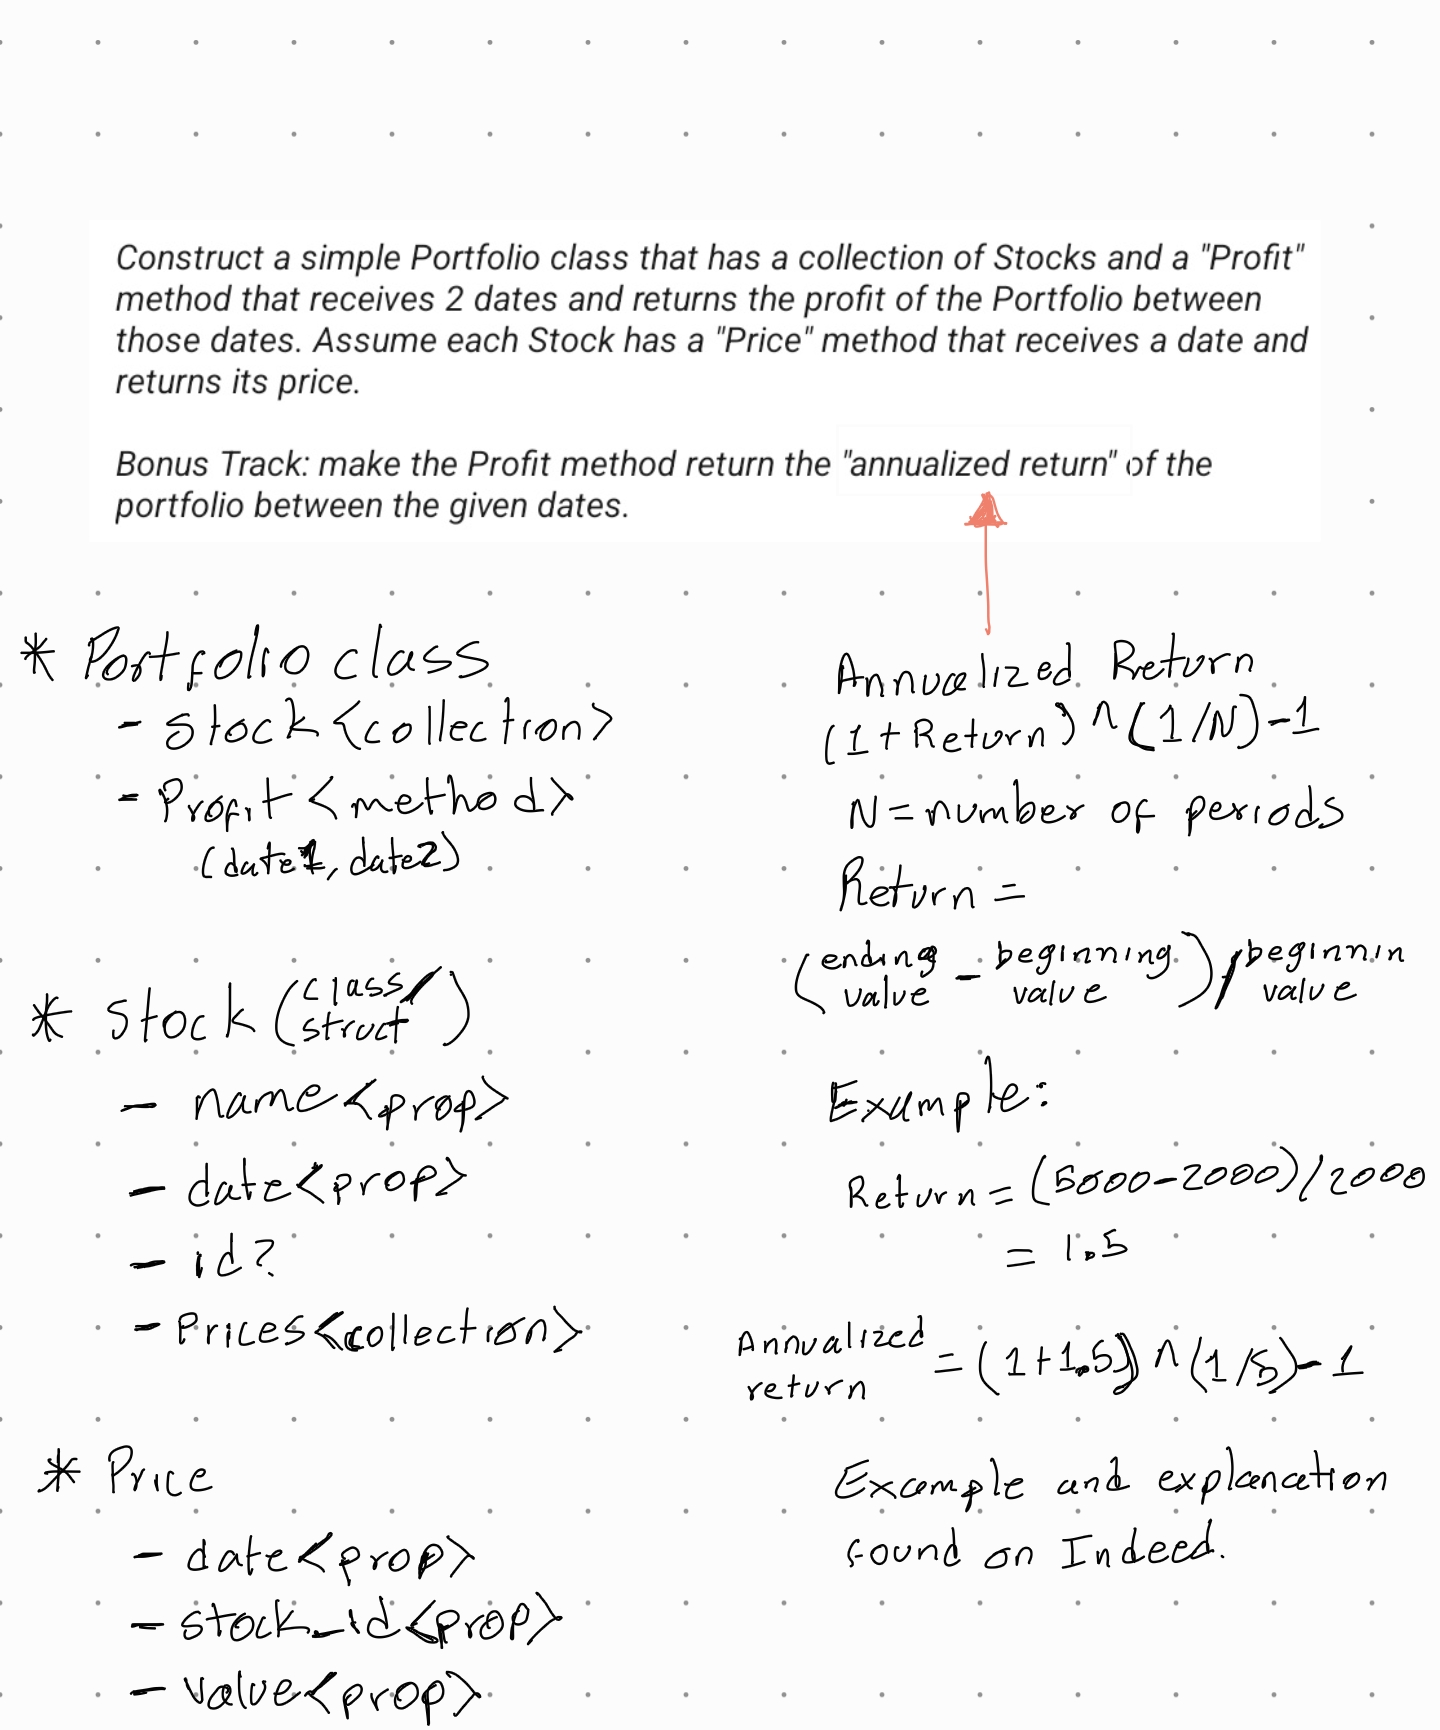 Construct a simple Portfolio class that has a collection of Stocks and a "Profit"
method that receives 2 dates and returns the profit of the Portfolio between
those dates. Assume each Stock has a "Price" method that receives a date and
returns its price.
Bonus Track: make the Profit method return the "annualized return" of the
portfolio between the given dates.
* Portfolio class
- Stock <collection>
- Profit <method>
(date1, date2)
* Stock (class/
struct)
- name <prop>
- date <prop>
- id?
- Prices <collection>
* Price
- date <prop>
- stock_id <prop>
- value <prop>
Annualized Return
(1 + Return) ^ (1/N) - 1
N = number of periods
Return =
(ending value - beginning value) / beginnin value
Example:
Return = (5000-2000)/2000
= 1.5
Annualized return = (1+1.5) ^ (1/5) - 1
Example and explanation
found on Indeed.